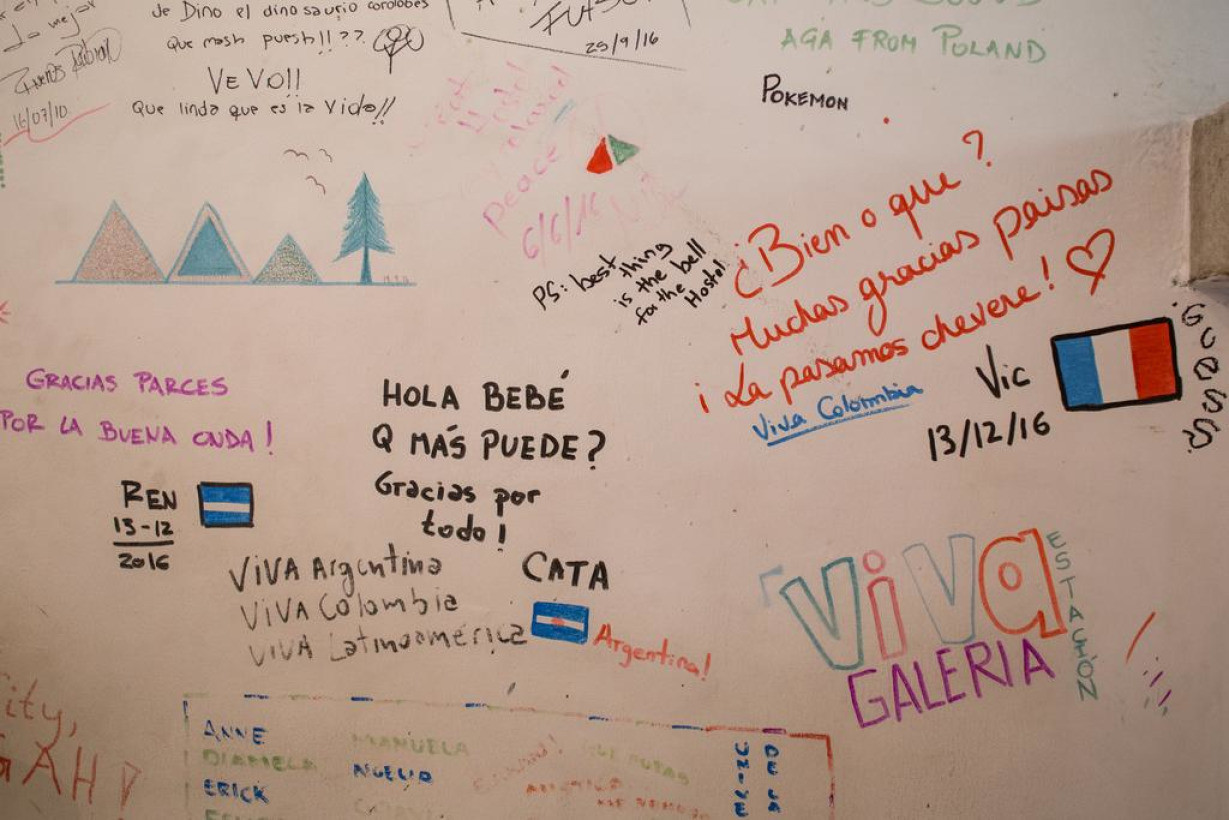 La mejor
16/07/10
de Dino el dinosaurio cordobes
Que mash puesh!!??
VE VO!!
Que linda que es la vida!!
25/9/16
AGA FROM POLAND
POKEMON
Peace
6/6/16
PS: best thing
is the bell
for the
Hostel
¿Bien o que?
Muchas gracias paisas
¡La pasamos chevere!
Viva Colombia
Vic
13/12/16
GUESS?
GRACIAS PARCES
POR LA BUENA ONDA!
REN
13-12
2016
HOLA BEBÉ
Q MÁS PUEDE?
Gracias por
todo!
CATA
VIVA Argentina
VIVA Colombia
VIVA Latinoamérica
Argentina!
VIVA
ESTACIÓN
GALERIA
ity,
GAH
ANNE
DIAMELA
ERICK
MANUELA
ANGELIA
UNILE
DE LA